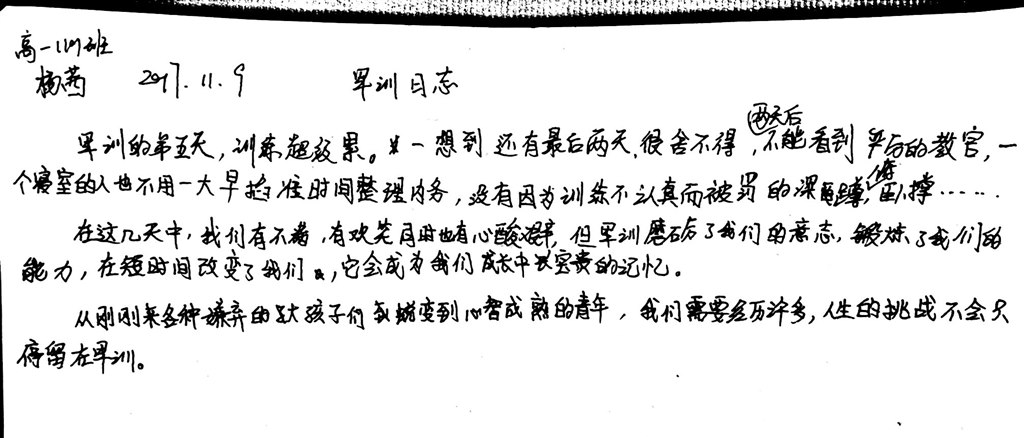 高一(19)班
杨茜 2017.11.9 军训日志
军训的第五天,训练超级累。一想到还有最后两天,很舍不得,两天后不能看到严厉的教官,一
个寝室的人也不用一大早抢准时间整理内务,没有因为训练不认真而被罚的深蹲,俯卧撑……
在这几天中,我们有不满,有欢笑同时也有心酸,但军训磨砺了我们的意志,锻炼了我们的
能力,在短时间改变了我们,它会成为我们成长中最宝贵的记忆。
从刚刚来各种嫌弃的孩子们到蜕变到心智成熟的青年,我们需要经历许多,人生的挑战不会只
停留在军训。